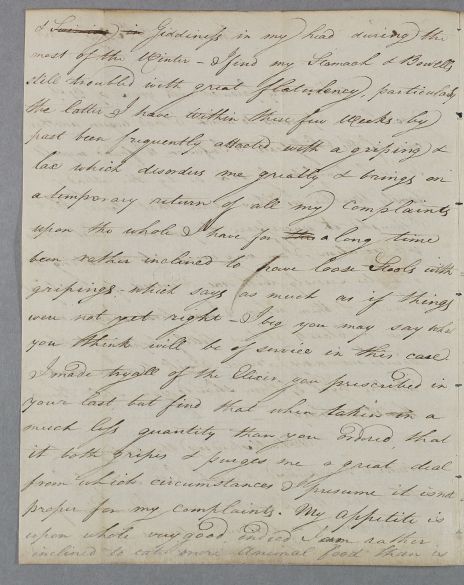 & Swimming in Giddiness in my head during the
most of the Winter - I find my Stomach & Bowells
still troubled with great flatulency, particularly
the latter & I have within these few Weeks by
past been frequently attacted with a griping &
lax which disorders me greatly & brings on
a temporary return of all my Complaints
upon the whole I have for this a long time
been rather inclined to have loose Stools with
gripings - which says as much as if things
were not yet right - I beg you may say what
you think will be of service in this case
I made tryall of the Elixir you prescribed in
your last but find that when taken in a
much less quantity than you ordered that
it both gripes & purges me a great deal
from which circumstances I presume it is not
proper for my complaints. My appetite is
upon whole very good indeed I am rather
inclined to eat more animal food than a